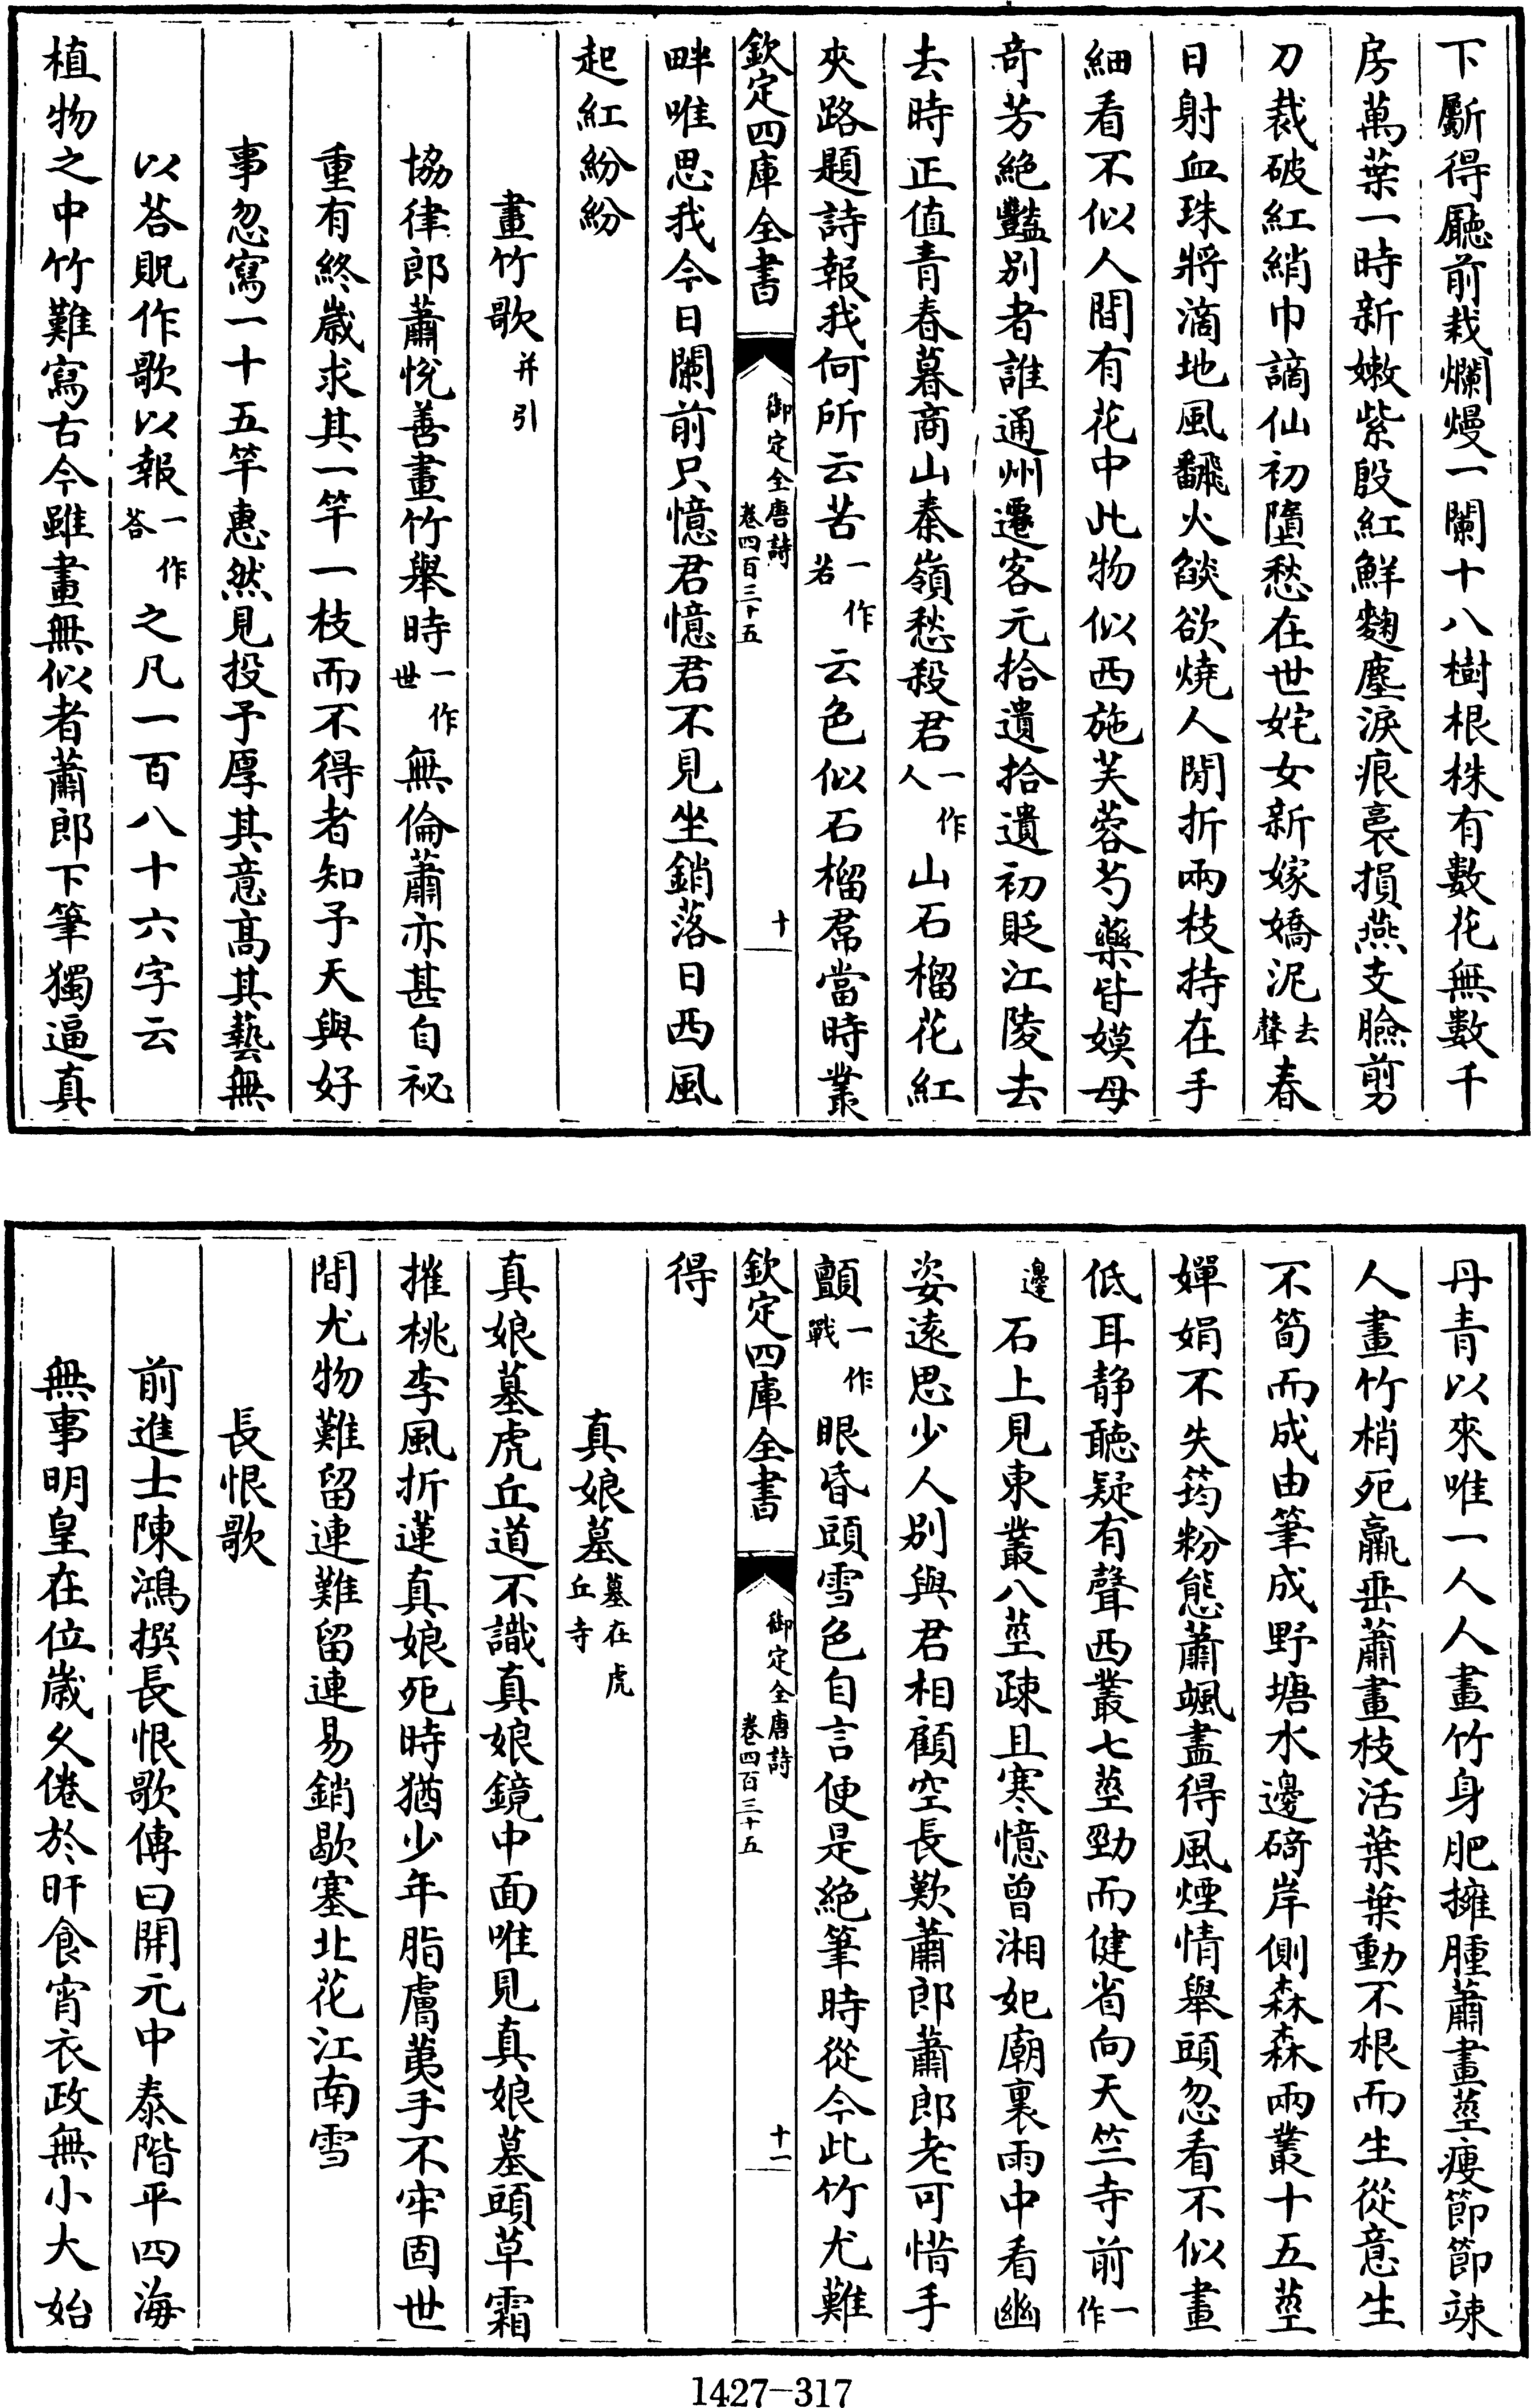 下斸得廳前栽爛熳一闌十八樹根株有數花無數千
房萬葉一時新嫩紫殷紅鮮麴塵淚痕裛損燕支臉剪
刀裁破紅綃巾謫仙初墮愁在世姹女新嫁嬌泥去聲春
日射血珠將滴地風飜火燄欲燒人閒折兩枝持在手
細看不似人間有花中此物似西施芙蓉芍藥皆嫫母
奇芳絶豔别者誰通州遷客元拾遺拾遺初貶江陵去
去時正值青春暮商山秦嶺愁殺君一作人山石榴花紅
夾路題詩報我何所云苦一作若云色似石榴帬當時叢
欽定四庫全書 御定全唐詩卷四百三十五 十
畔唯思我今日闌前只憶君憶君不見坐銷落日西風
起紅紛紛
畫竹歌并引
協律郎蕭悅善畫竹舉時一作世無倫蕭亦甚自祕
重有終歲求其一竿一枝而不得者知予天與好
事忽寫一十五竿惠然見投予厚其意高其藝無
以荅貺作歌以報一作荅之凡一百八十六字云
植物之中竹難寫古今雖畫無似者蕭郎下筆獨逼真
丹青以來唯一人人畫竹身肥擁腫蕭畫莖瘦節節竦
人畫竹梢死羸垂蕭畫枝活葉葉動不根而生從意生
不筍而成由筆成野塘水邊碕岸側森森兩叢十五莖
嬋娟不失筠粉態蕭颯盡得風煙情舉頭忽看不似畫
低耳静聽疑有聲西叢七莖勁而健省向天竺寺前一作
邊石上見東叢八莖疎且寒憶曾湘妃廟裏雨中看幽
姿遠思少人别與君相顧空長歎蕭郎蕭郎老可惜手
顫一作戰眼昏頭雪色自言便是絶筆時從今此竹尤難
欽定四庫全書 御定全唐詩卷四百三十五 十一
得
真娘墓墓在虎丘寺
真娘墓虎丘道不識真娘鏡中面唯見真娘墓頭草霜
摧桃李風折蓮真娘死時猶少年脂膚荑手不牢固世
間尤物難留連難留連易銷歇塞北花江南雪
長恨歌
前進士陳鴻撰長恨歌傳曰開元中泰階平四海
無事明皇在位歲久倦於旰食宵衣政無小大始
1427-317